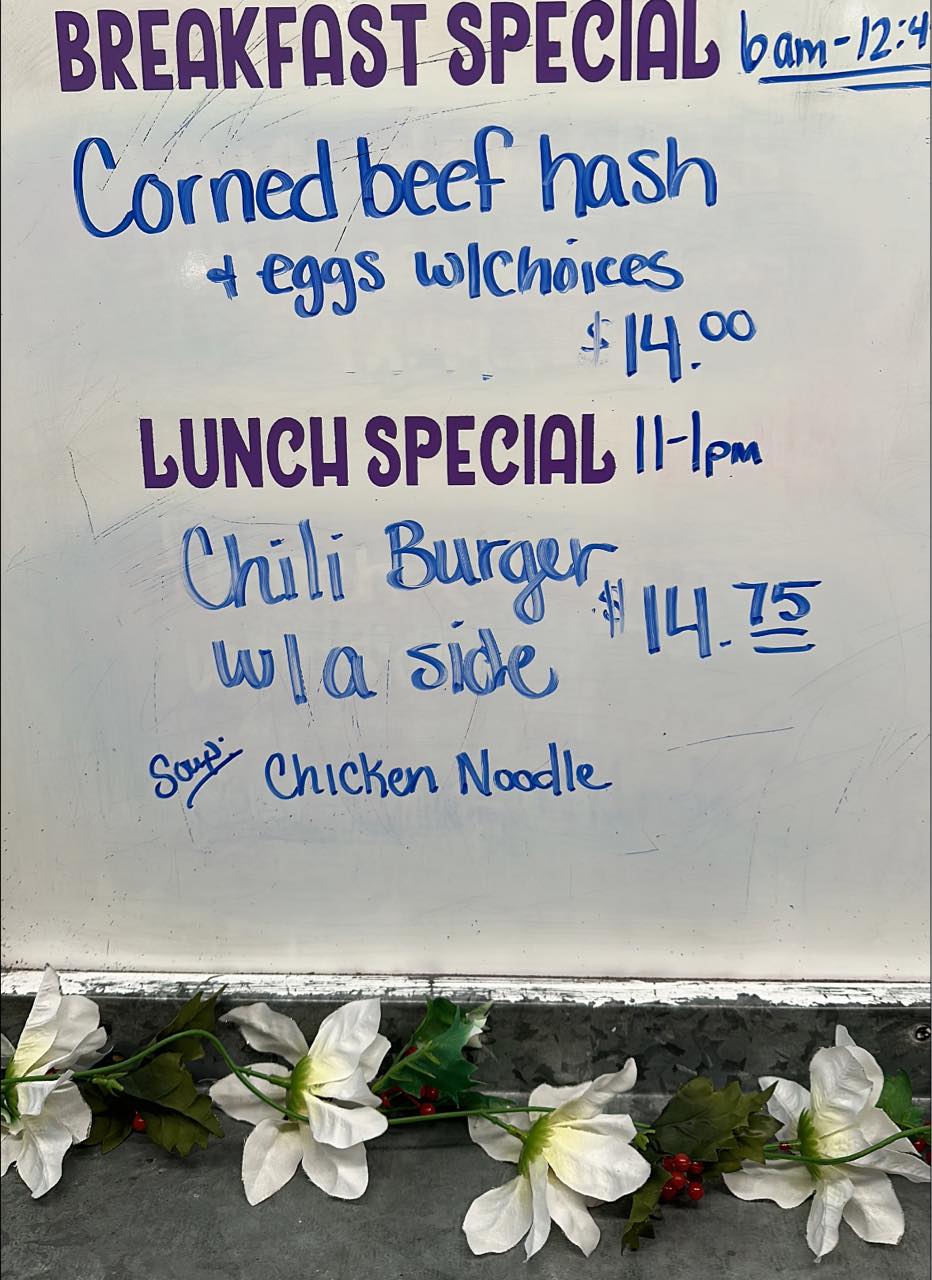 BREAKFAST SPECIAL 6am-12:4
Corned beef hash
& eggs w/choices
$14.00
LUNCH SPECIAL 11-1pm
Chili Burger
$14.75
w/a side
Soup: Chicken Noodle